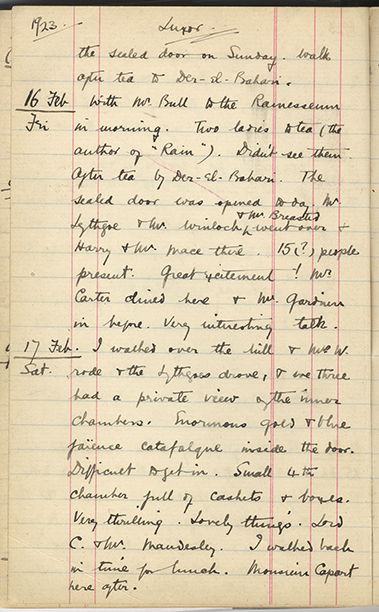 1923. Luxor.
the sealed door on Sunday. Walk
after tea to Der-El-Bahari.
16 Feb With Mr. Bull to the Ramesseum
Fri in morning. Two ladies to tea (the
author of "Rain"). Didn't see them.
After tea by Der-El-Bahari. The
sealed door was opened to day. Mr.
& Mr Breasted
Lythgoe & Mr. Winlock went over &
Harry & Mr. Mace there. 15(?) people
present. Great excitement! Mr.
Carter dined here & Mr. Gardiner
in before. Very interesting talk.
17 Feb. I walked over the hill & Mrs W.
Sat. rode & the Lythgoes drove, & we three
had a private view of the inner
chambers. Enormous gold & blue
faience catafalque inside the door.
Difficult to get in. Small 4th
chamber full of caskets & boxes.
Very thrilling. Lovely things. Lord
C. & Mr. Maudesley. I walked back
in time for lunch. Monsieur Capart
here after.